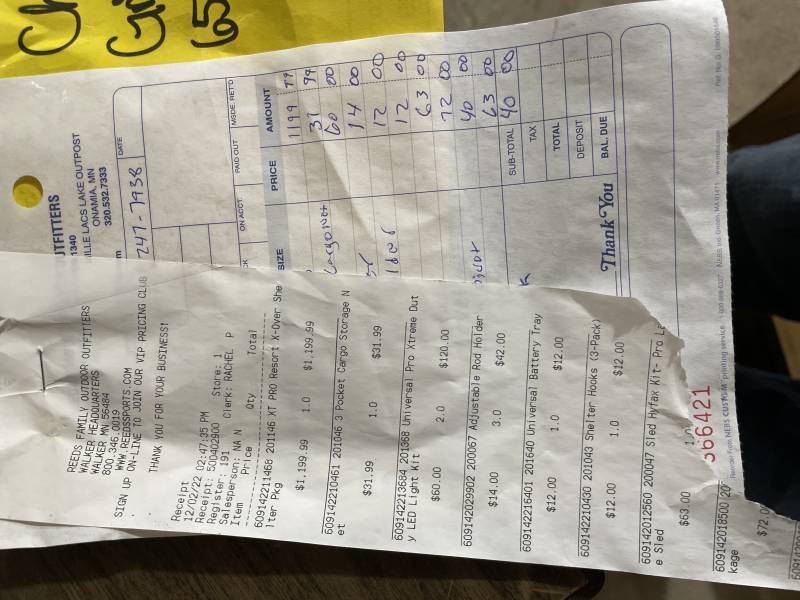 65
UTFITTERS
1340
ILLE LACS LAKE OUTPOST
ONAMIA, MN
320.532.7333
DATE
247-7938
ON ACCT.
PAID OUT
MSDE. RET'D
SIZE
PRICE
AMOUNT
1199 99
31 99
Cargo Net
60 00
14 00
12 00
12 00
63 00
72 00
40 00
63 00
40 00
SUB-TOTAL
TAX
TOTAL
DEPOSIT
BAL. DUE
Thank You
566421
REEDS FAMILY OUTDOOR OUTFITTERS
WALKER HEADQUARTERS
WALKER, MN 56484
800.346.0019
WWW.REEDSSPORTS.COM
SIGN UP ON-LINE TO JOIN OUR VIP PRICING CLUB
THANK YOU FOR YOUR BUSINESS!
Receipt
12/02/22 02:47:35 PM
Receipt: 500402900 Store: 1
Register: 191 Clerk: RACHEL P
Salesperson: NA N
Item Price Qty Total
609142211468 201146 XT PRO Resort X-Over She
lter Pkg
$1,199.99 1.0 $1,199.99
609142210461 201046 3 Pocket Cargo Storage N
et
$31.99 1.0 $31.99
609142213684 201368 Universal Pro Xtreme Dut
y LED Light Kit
$60.00 2.0 $120.00
609142029902 200067 Adjustable Rod Holder
$14.00 3.0 $42.00
609142216401 201640 Universal Battery Tray
$12.00 1.0 $12.00
609142210430 201043 Shelter Hooks (3-Pack)
$12.00 1.0 $12.00
609142012560 200047 Sled Hyfax Kit- Pro La
e Sled
$63.00 1.0
609142018500 20
kage
$72.0